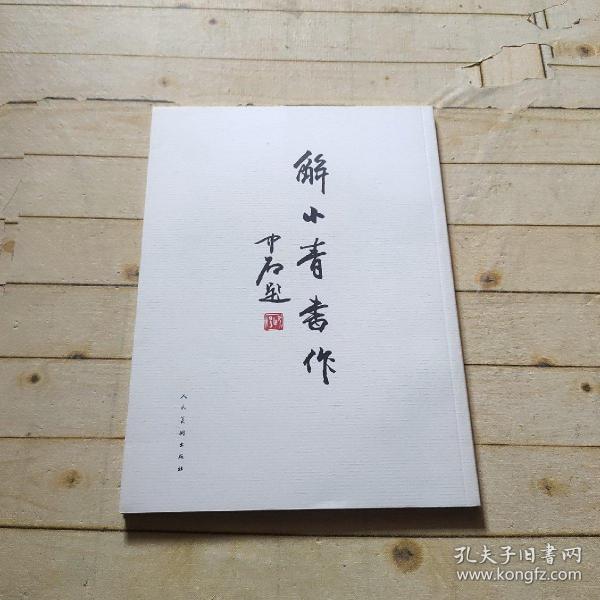 解小青书作
中石题
人民美术出版社
孔夫子旧书网
www.kongfz.com